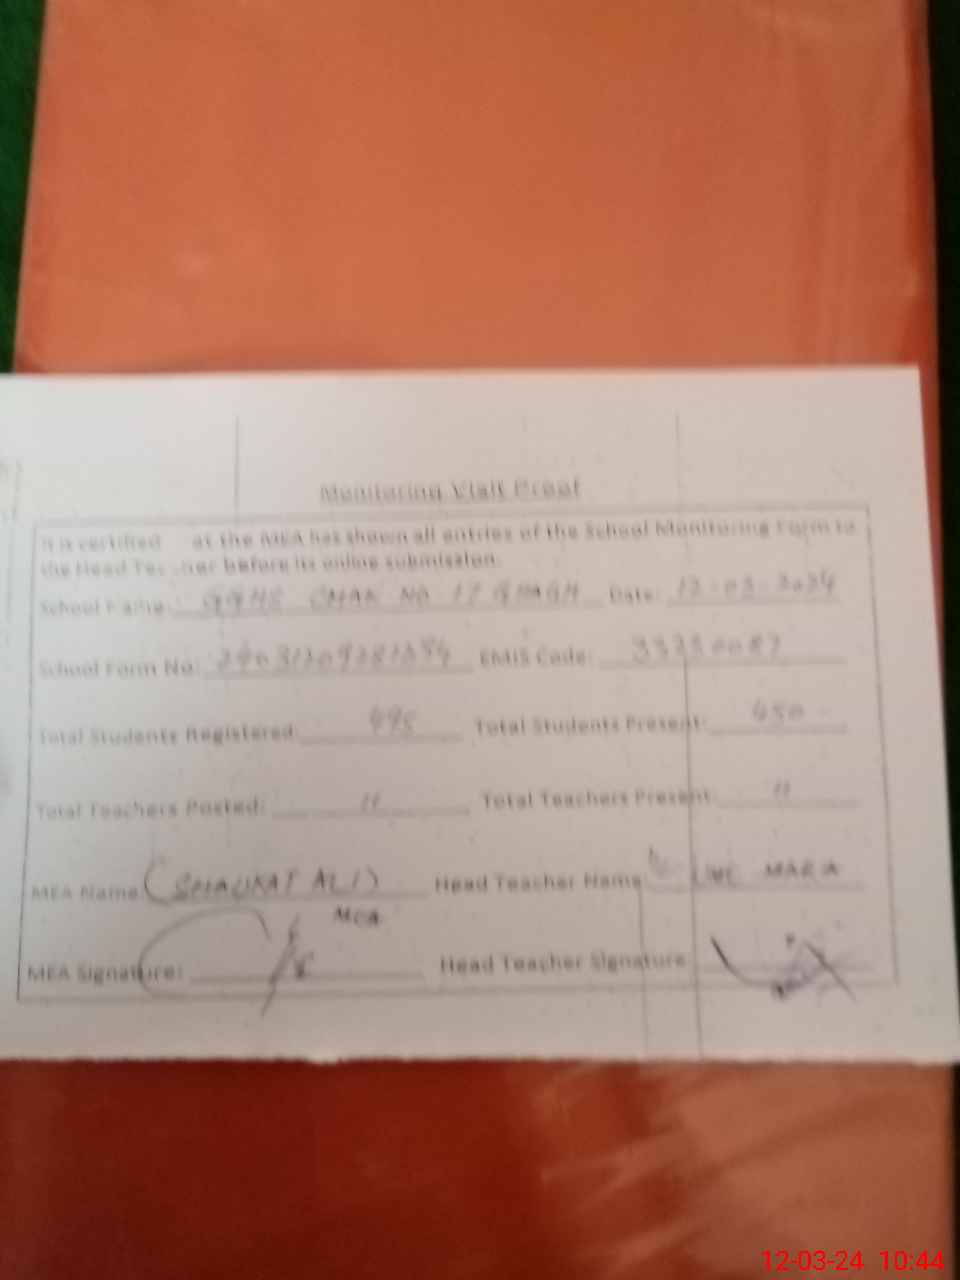 Monitoring Visit Proof
It is certified at the MEA has shown all entries of the School Monitoring Form to
the Head before its online submission.
School Name: GGHS CHAK NO 17 GHAGH Date: 12-03-2024
School Form No: EMIS Code:
Total Students Registered: 495 Total Students Present: 450
Total Teachers Posted: 11 Total Teachers Present: 11
MEA Name (SHAUKAT ALI) Head Teacher Name MARIA
MEA
MEA Signature: Head Teacher Signature
12-03-24 10:44